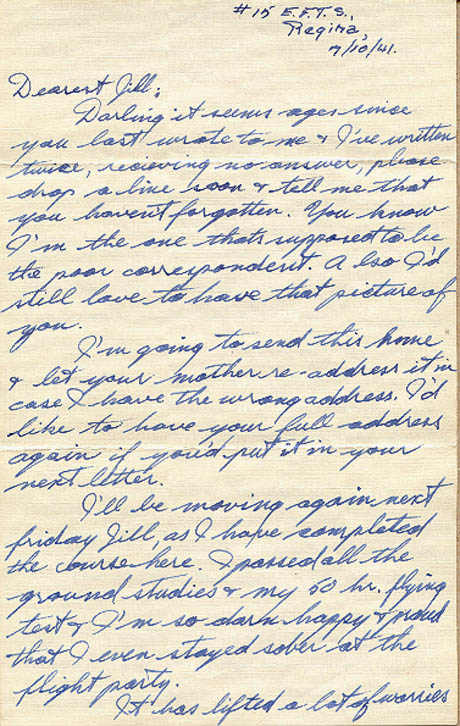 #15 E.F.T.S.,
Regina,
7/10/41.
Dearest Jill;
Darling it seems ages since
you last wrote to me & I've written
twice, recieving no answer, please
drop a line soon & tell me that
you haven't forgotten. You know
I'm the one thats supposed to be
the poor correspondent. Also I'd
still love to have that picture of
you.
I'm going to send this home
& let your mother re-address it in
case I have the wrong address. I'd
like to have your full address
again if you'd put it in your
next letter.
I'll be moving again next
friday Jill, as I have completed
the course here. I passed all the
ground studies & my 50 hr. flying
test & I'm so darn happy & proud
that I even stayed sober at the
flight party.
It has lifted a lot of worries